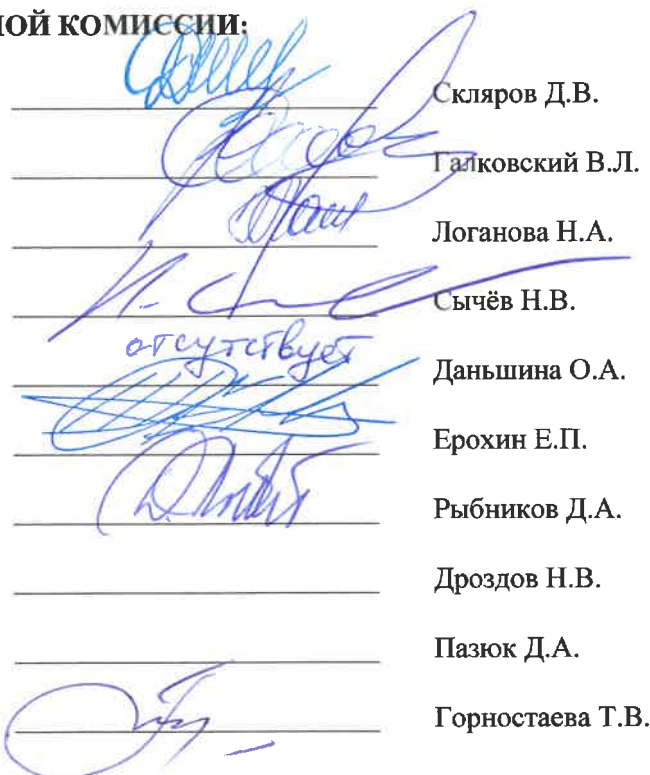 НОЙ КОМИССИИ:
Скляров Д.В.
Галковский В.Л.
Логанова Н.А.
Сычёв Н.В.
отсутствует Даньшина О.А.
Ерохин Е.П.
Рыбников Д.А.
Дроздов Н.В.
Пазюк Д.А.
Горностаева Т.В.